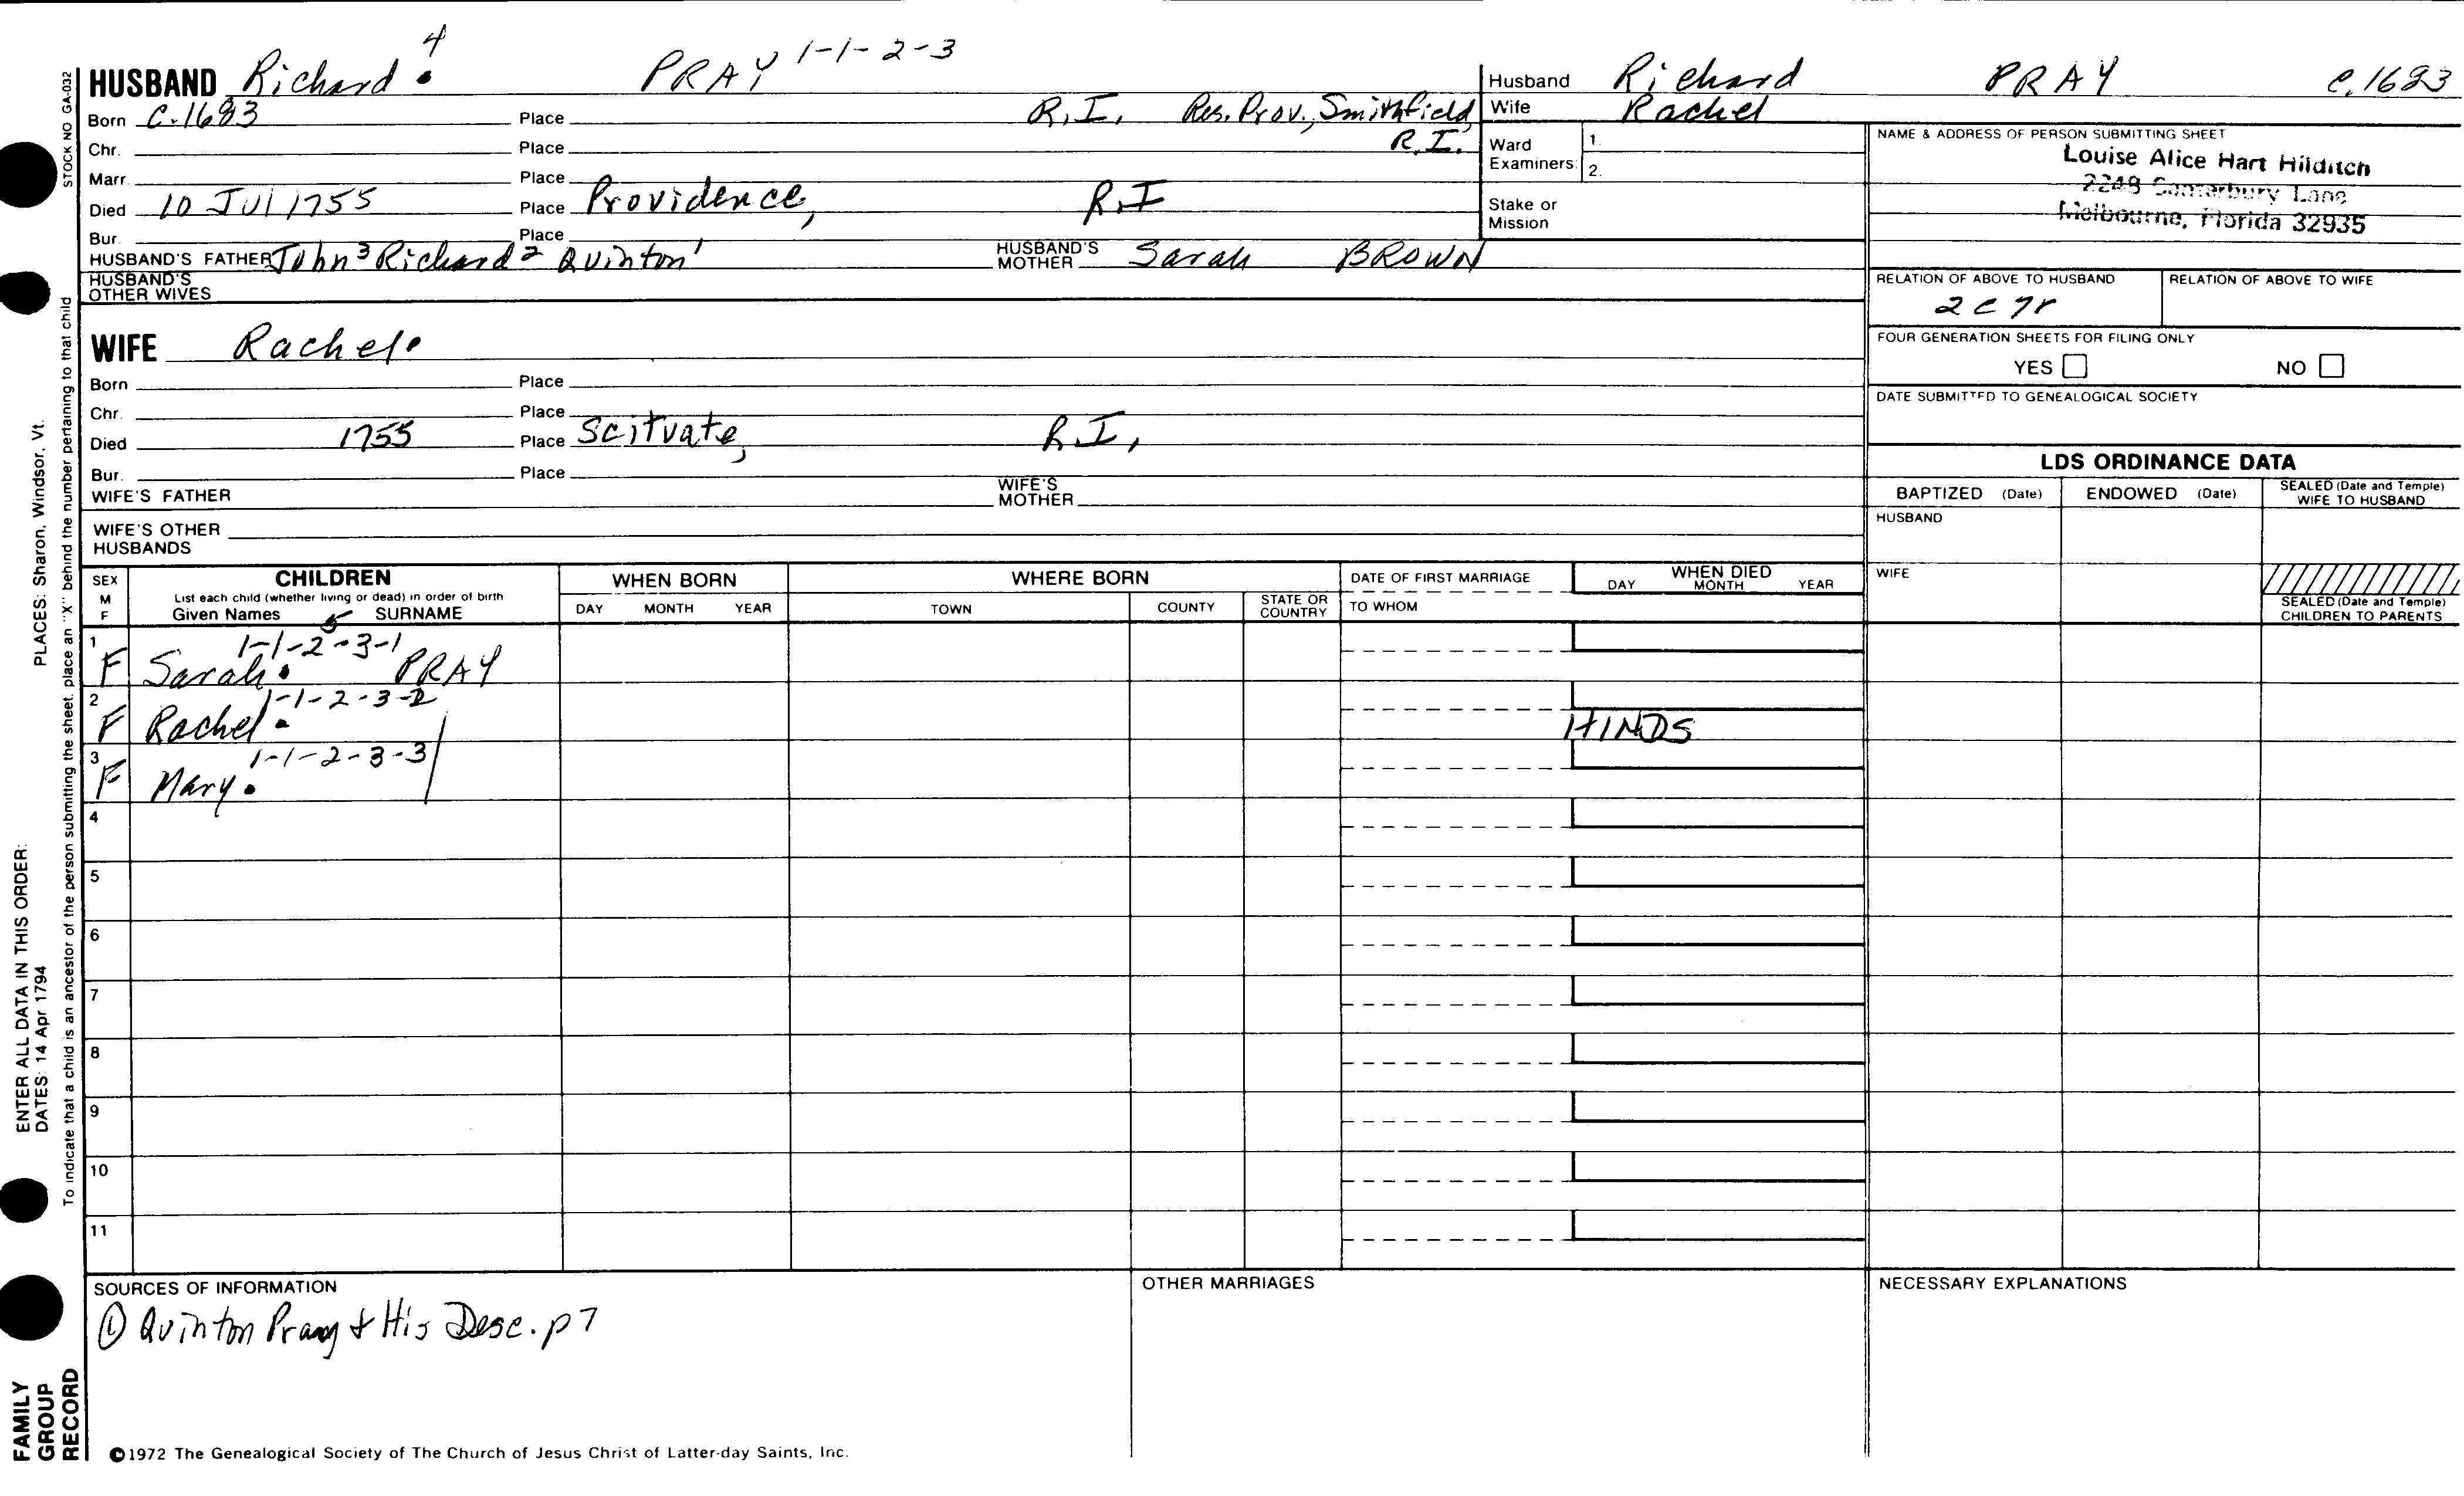 HUSBAND Richard 4 PRAY 1-1-2-3
Born C.1683 Place R.I. Res. Prov., Smithfield, R.I.
Chr. Place
Marr. Place
Died 10 Jul 1755 Place Providence, R.I
Bur. Place
HUSBAND'S FATHER John 3 Richard 2 Quinton 1 HUSBAND'S MOTHER Sarah BROWN
HUSBAND'S OTHER WIVES
WIFE Rachel
Born Place
Chr. Place
Died 1755 Place Scituate, R.I.
Bur. Place
WIFE'S FATHER WIFE'S MOTHER
WIFE'S OTHER HUSBANDS
Husband Richard PRAY C.1683
Wife Rachel
Ward Examiners: 1. 2.
Stake or Mission
NAME & ADDRESS OF PERSON SUBMITTING SHEET
Louise Alice Hart Hilditch
Lane
Melbourne, Florida 32935
RELATION OF ABOVE TO HUSBAND RELATION OF ABOVE TO WIFE
2 c 7r
FOUR GENERATION SHEETS FOR FILING ONLY
YES NO
DATE SUBMITTED TO GENEALOGICAL SOCIETY
LDS ORDINANCE DATA
BAPTIZED (Date) ENDOWED (Date) SEALED (Date and Temple) WIFE TO HUSBAND
HUSBAND
WIFE
SEALED (Date and Temple) CHILDREN TO PARENTS
SEX M F CHILDREN WHEN BORN WHERE BORN DATE OF FIRST MARRIAGE WHEN DIED
List each child (whether living or dead) in order of birth
Given Names 5 SURNAME DAY MONTH YEAR TOWN COUNTY STATE OR COUNTRY TO WHOM DAY MONTH YEAR
1 F Sarah 1-1-2-3-1 PRAY
2 F Rachel 1-1-2-3-2 HINDS
3 F Mary 1-1-2-3-3
4
5
6
7
8
9
10
11
SOURCES OF INFORMATION OTHER MARRIAGES NECESSARY EXPLANATIONS
① Quinton Pray & His Desc. p 7
©1972 The Genealogical Society of The Church of Jesus Christ of Latter-day Saints, Inc.
STOCK NO GA-032
To indicate that a child is an ancestor of the person submitting the sheet, place an "X" behind the number pertaining to that child
ENTER ALL DATA IN THIS ORDER:
DATES: 14 Apr 1794 PLACES: Sharon, Windsor, Vt.
FAMILY
GROUP
RECORD